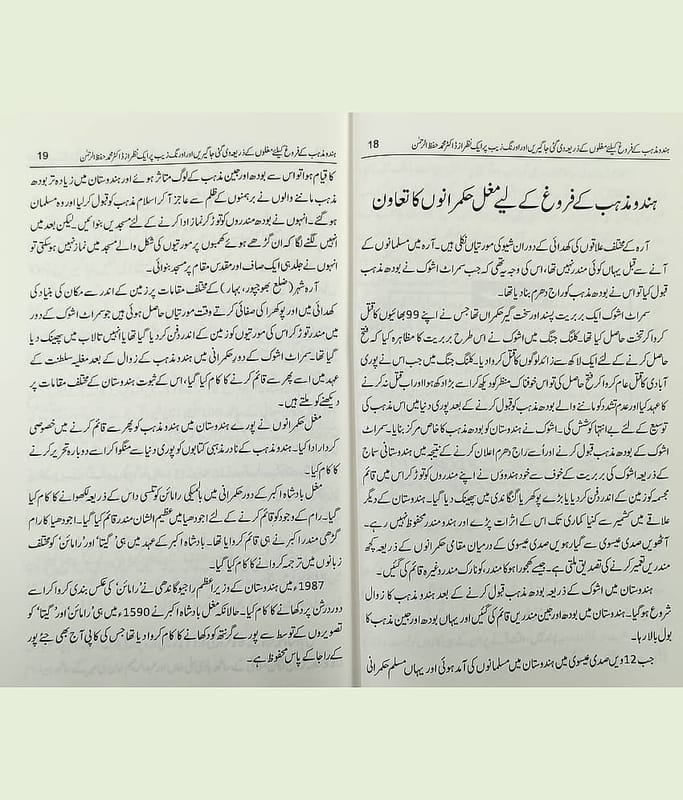 ہندو مذہب کے فروغ کیلئے مغلوں کے ذریعہ دی گئی جاگیریں اور اورنگ زیب پر ایک نظر از ڈاکٹر محمد حفظ الرحمٰن 18
ہندو مذہب کے فروغ کے لیے مغل حکمرانوں کا تعاون
آرہ کے مختلف علاقوں کی کھدائی کے دوران شیو کی مورتیاں نکلی ہیں۔ آرہ میں مسلمانوں کے
آنے سے قبل یہاں کوئی مندر نہیں تھا، اس کی وجہ یہ تھی کہ جب سمراٹ اشوک نے بودھ مذہب
قبول کیا تو اس نے بودھ مذہب کو راج دھرم بنا دیا تھا۔
سمراٹ اشوک ایک بربریت پسند اور سخت گیر حکمراں تھا جس نے اپنے 99 بھائیوں کا قتل
کروا کر تخت حاصل کیا تھا۔ کلنگ جنگ میں اشوک نے اس طرح بربریت کا مظاہرہ کیا کہ فتح
حاصل کرنے کے لئے ایک لاکھ سے زائد لوگوں کا قتل کروا دیا۔ کلنگ جنگ میں جب اس نے پوری
آبادی کا قتل عام کروا کر فتح حاصل کی تو اس خوفناک منظر کو دیکھ کر اسے بڑا دکھ ہوا اور اب قتل نہ کرنے
کا عہد کیا اور عدم تشدد کو ماننے والے بودھ مذہب کو قبول کرنے کے بعد پوری دنیا میں اس مذہب کی
توسیع کے لئے بے انتہا کوشش کی۔ اشوک نے ہندوستان کو بودھ مذہب کا خاص مرکز بنایا۔ سمراٹ
اشوک کے بودھ مذہب قبول کرنے اور اُسے راج دھرم اعلان کرنے کے نتیجہ میں ہندوستانی سماج
کے ذریعہ اشوک کی بربریت کے خوف سے خود ہندوؤں نے اپنے مندروں کو توڑ کر اس میں قائم
مجسمہ کو زمین کے اندر دفن کر دیا یا بڑے پوکھر یا گنگا ندی میں پھینک دیا گیا۔ ہندوستان کے دیگر
علاقے میں کشمیر سے کنیا کماری تک اس کے اثرات پڑے اور ہندو مندر محفوظ نہیں رہے۔
آٹھویں صدی عیسوی سے گیارہویں صدی عیسوی کے درمیان مقامی حکمرانوں کے ذریعہ کچھ
مندریں تعمیر کرنے کی تصدیق ملتی ہے۔ جیسے کھجوراہو کا مندر، کونارک مندر وغیرہ قائم کی گئیں۔
ہندوستان میں اشوک کے ذریعہ بودھ مذہب قبول کرنے کے بعد ہندو مذہب کا زوال
شروع ہو گیا۔ ہندوستان میں بودھ اور جین مندریں قائم کی گئیں اور یہاں بودھ اور جین مذہب کا
بول بالا رہا۔
جب 12ویں صدی عیسوی میں ہندوستان میں مسلمانوں کی آمد ہوئی اور یہاں مسلم حکمرانی
ہندو مذہب کے فروغ کیلئے مغلوں کے ذریعہ دی گئی جاگیریں اور اورنگ زیب پر ایک نظر از ڈاکٹر محمد حفظ الرحمٰن 19
کا قیام ہوا تو اس سے بودھ اور جین مذہب کے لوگ متاثر ہوئے اور ہندوستان میں زیادہ تر بودھ
مذہب ماننے والوں نے برہمنوں کے ظلم سے عاجز آ کر اسلام مذہب کو قبول کر لیا اور وہ مسلمان
ہو گئے۔ انہوں نے بودھ مندروں کو توڑ کر نماز ادا کرنے کے لئے مسجدیں بنوائیں۔ لیکن بعد میں
انہیں لگنے لگا کہ ان گڑھے ہوئے کھمبوں پر مورتیوں کی شکل والے مسجد میں نماز نہیں ہو سکتی تو
انہوں نے جلد ہی ایک صاف اور مقدس مقام پر مسجد بنوائی۔
آرہ شہر (ضلع بھوجپور، بہار) کے مختلف مقامات پر زمین کے اندر سے مکان کی بنیاد کی
کھدائی میں اور پوکھرا کی صفائی کرتے وقت مورتیاں حاصل ہوئی ہیں جو سمراٹ اشوک کے دور
میں مندر توڑ کر اس کی مورتیوں کو زمین کے اندر دفن کر دیا گیا تھا یا انہیں تالاب میں پھینک دیا
گیا تھا۔ سمراٹ اشوک کے دور حکمرانی میں ہندو مذہب کے زوال کے بعد مغلیہ سلطنت کے
عہد میں اسے پھر سے قائم کرنے کا کام کیا گیا، اس کے ثبوت ہندوستان کے مختلف مقامات پر
دیکھنے کو ملتے ہیں۔
مغل حکمرانوں نے پورے ہندوستان میں ہندو مذہب کو پھر سے قائم کرنے میں خصوصی
کردار ادا کیا۔ ہندو مذہب کے نادر مذہبی کتابوں کو پوری دنیا سے منگوا کر اسے دوبارہ تحریر کرنے
کا کام کیا۔
مغل بادشاہ اکبر کے دور حکمرانی میں بالمیکی رامائن کو تلسی داس کے ذریعہ لکھوانے کا کام کیا
گیا۔ رام کے وجود کو قائم کرنے کے لئے اجودھیا میں عظیم الشان مندر قائم کیا گیا۔ اجودھیا کا رام
گڑھی مندر اکبر نے ہی قائم کروایا تھا۔ بادشاہ اکبر کے عہد میں ہی 'گیتا' اور 'رامائن' کو مختلف
زبانوں میں ترجمہ کروانے کا کام کیا گیا۔
1987ء میں ہندوستان کے وزیر اعظم راجیو گاندھی نے 'رامائن' کی عکس بندی کروا کر اسے
دوردرشن پر دکھانے کا کام کیا۔ حالانکہ مغل بادشاہ اکبر نے 1590ء میں ہی 'رامائن' اور 'گیتا' کو
تصویروں کے توسط سے پورے گرنتھ کو دکھانے کا کام کروا دیا تھا جس کی کاپی آج بھی جئے پور
کے راجا کے پاس محفوظ ہے۔